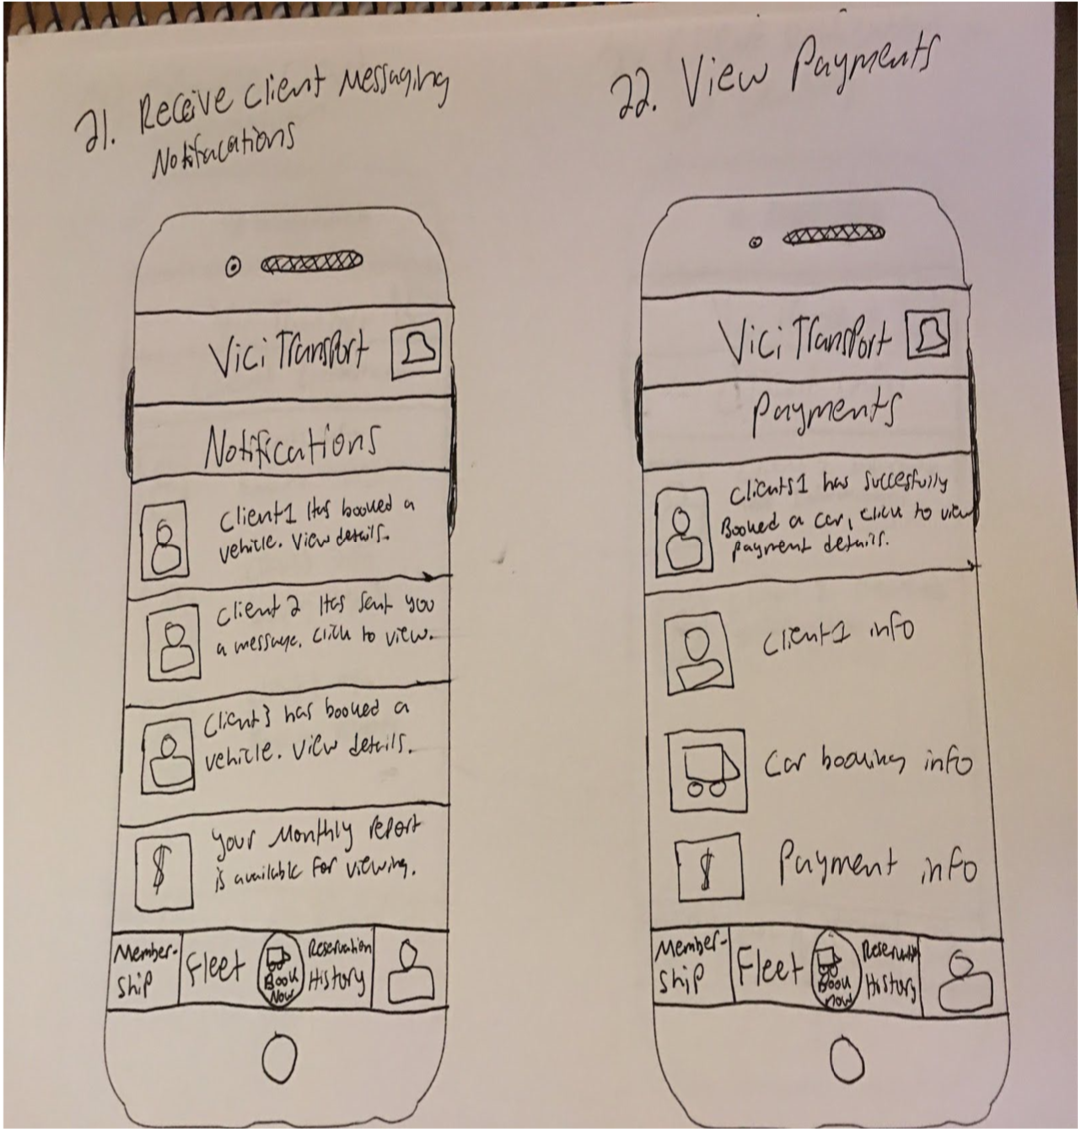 21. Receive Client Messaging
Notifacations
Vici Transport
Notifications
Client1 Has booked a
vehicle. View details.
Client 2 Has sent you
a message. Click to view.
Client3 has booked a
vehicle. View details.
$
Your Monthly report
is available for viewing.
Member-
ship
Fleet
Book
Now
Reservation
History
22. View Payments
Vici Transport
Payments
Clients1 has succesfully
Booked a car, click to view
payment details.
Client1 info
Car booking info
$
Payment info
Member-
ship
Fleet
Book
now
Reservation
History